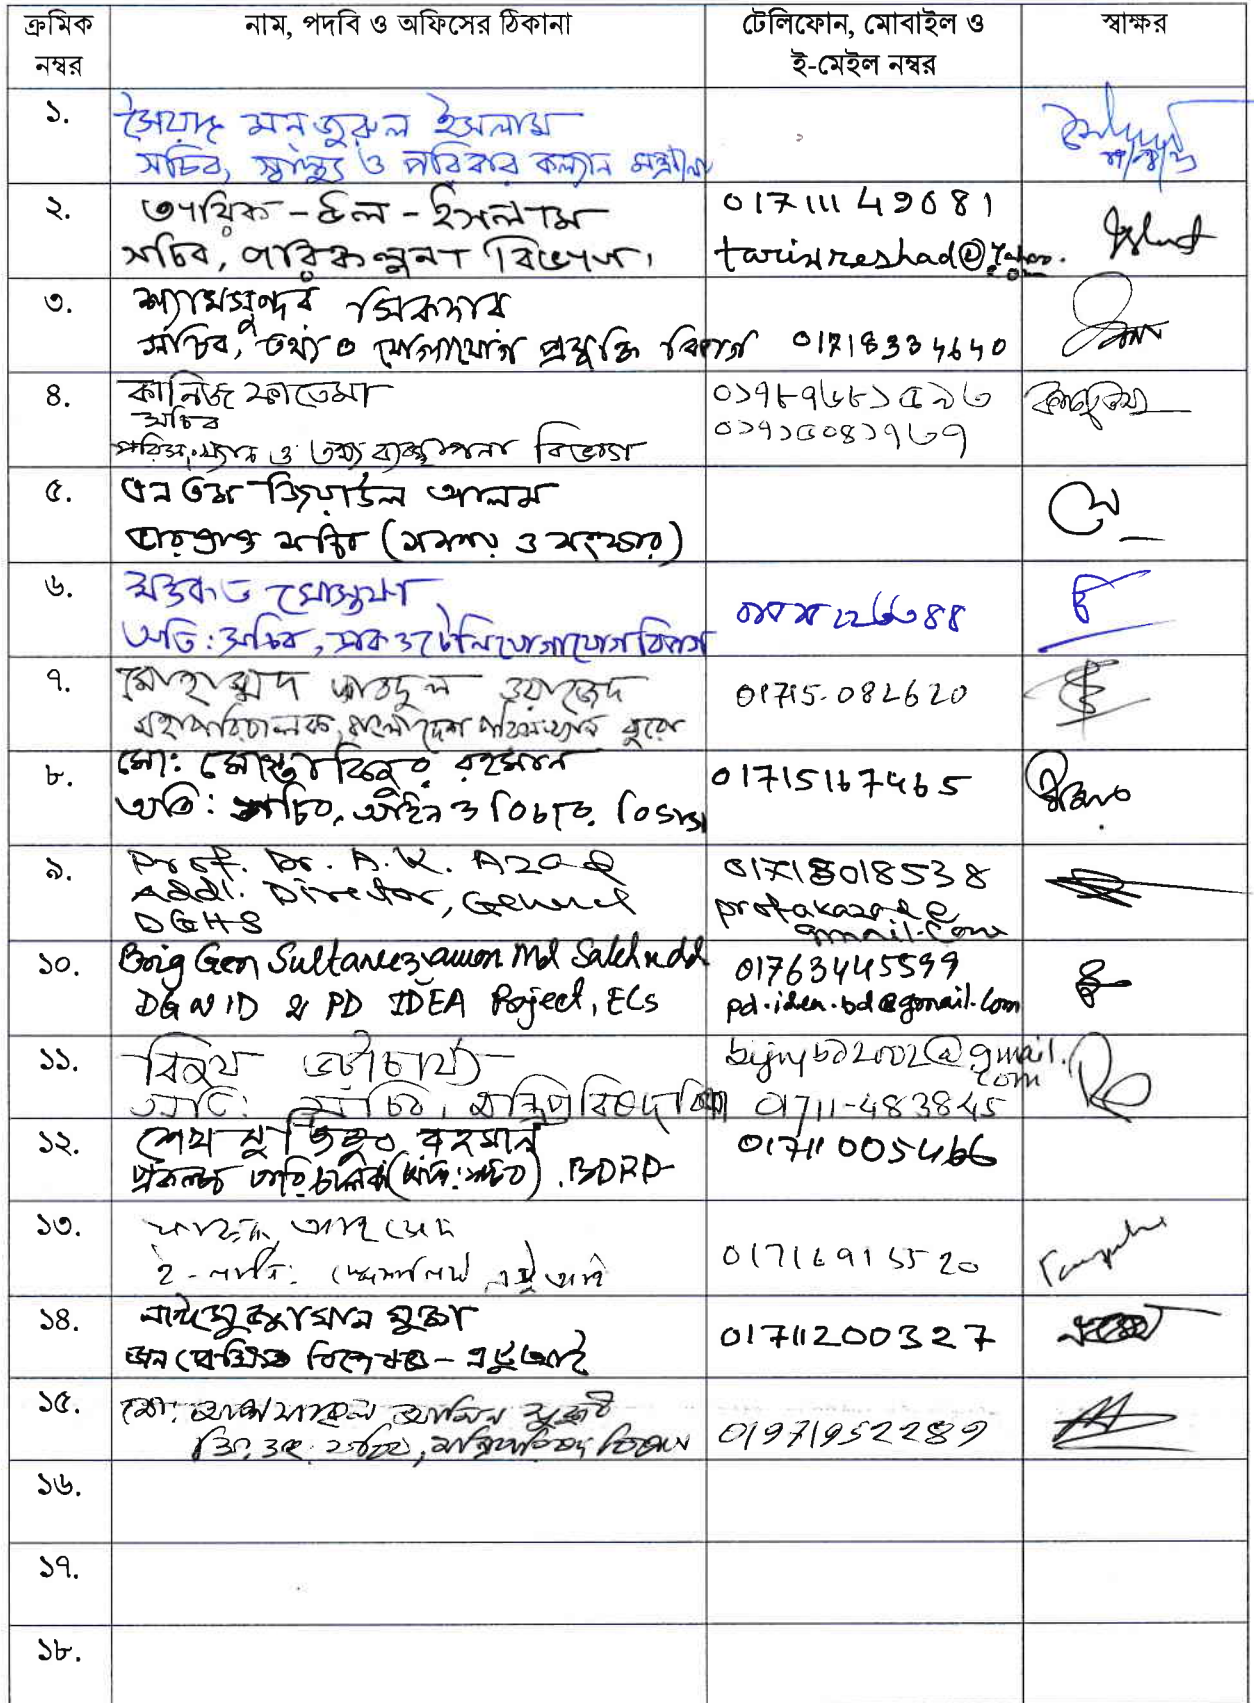 ক্রমিক নম্বর
নাম, পদবি ও অফিসের ঠিকানা
টেলিফোন, মোবাইল ও ই-মেইল নম্বর
স্বাক্ষর
১.
সৈয়দ মনজুরুল ইসলাম
সচিব, স্বাস্থ্য ও পরিবার কল্যান
২.
তারিক-উল-ইসলাম
সচিব, পরিকল্পনা বিভাগ।
01711149681
৩.
শ্যামসুন্দর সিকদার
সচিব, তথ্য ও যোগাযোগ প্রযুক্তি বিভাগ 01718334640
৪.
কানিজ ফাতেমা
সচিব
পরিসংখ্যান ও তথ্য ব্যবস্থাপনা বিভাগ
৫.
এন এম জিয়াউল আলম
ভারপ্রাপ্ত সচিব (সমন্বয় ও সংস্কার)
৬.
মোস্তফা
অতি: সচিব, ডাক ও টেলিযোগাযোগ বিভাগ
৭.
মোহাম্মদ আবদুল ওয়াজেদ
মহাপরিচালক, বাংলাদেশ পরিসংখ্যান ব্যুরো
01715-082620
৮.
মো: মোস্তাফিজুর রহমান
অতি: সচিব, আইন ও বিচার বিভাগ
01715167465
৯.
Prof. Dr. A. K. Azad
Addl. Director, General
DGHS
01715018538
profakazad@
gmail.com
১০.
Brig Gen Sultanuzzaman Md Salehudd
DG NID & PD IDEA Project, ECS
01763445599
pd.idea.bd@gmail.com
১১.
বিজয় ভট্টাচার্য্য
অতি: সচিব, মন্ত্রিপরিষদ বিভাগ
bijoybd2002@gmail.
com
01711-483845
১২.
শেখ মুজিবুর রহমান
প্রকল্প পরিচালক (অতি: সচিব). BDRP
017110054
১৩.
01716915520
১৪.
নাইমুজ্জামান মুক্তা
জনপ্রেক্ষিত বিশেষজ্ঞ - এটুআই
01711200327
১৫.
মো:
সচিব, মন্ত্রিপরিষদ বিভাগ
01971952289
১৬.
১৭.
১৮.